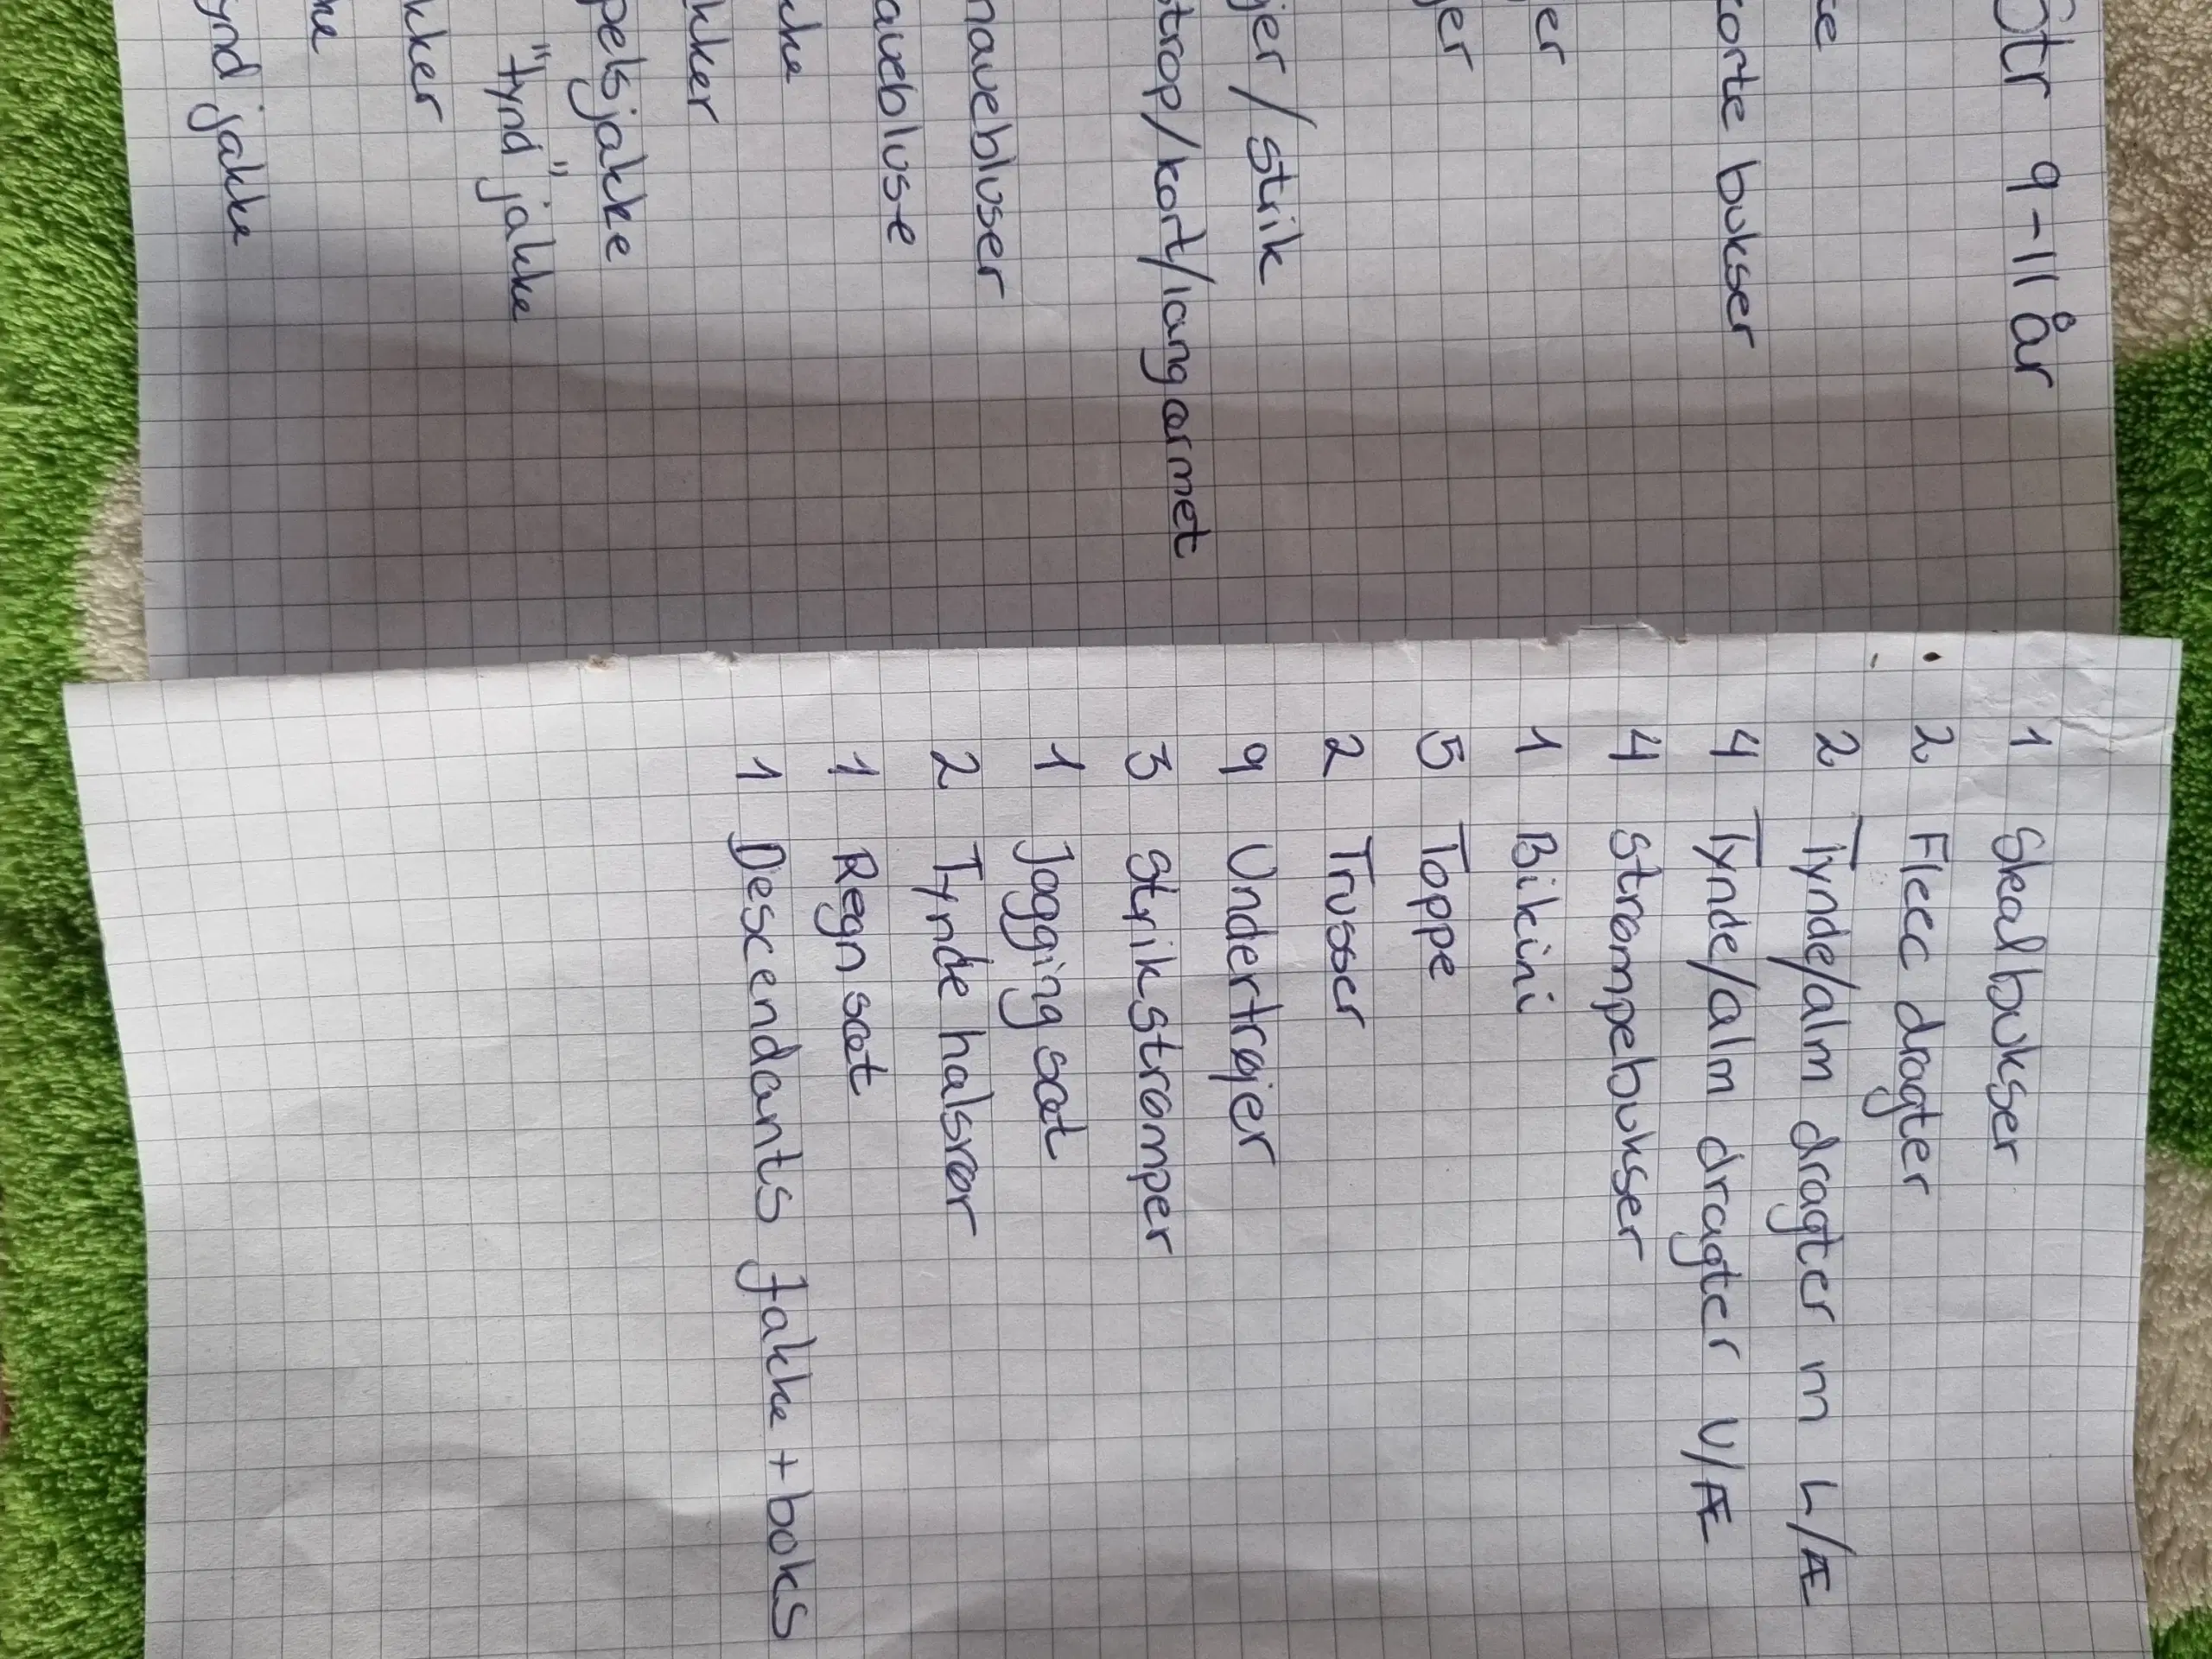 Str 9-11 år
korte bukser
er
jer
jer / strik
strop/kort/langarmet
navebluser
avebluse
kke
kker
pelsjakke
"Tynd" jakke
kker
ke
ynd jakke
1 Skealbukser
2 Fleec dragter
2 Tynde/alm dragter m L/Æ
4 Tynde/alm dragter U/Æ
4 Strømpebukser
1 Bikini
5 Toppe
2 Trusser
9 Undertrøjer
3 Strik strømper
1 Jogging sæt
2 Tynde halsrør
1 Regn sæt
1 Descendants jakke + boks